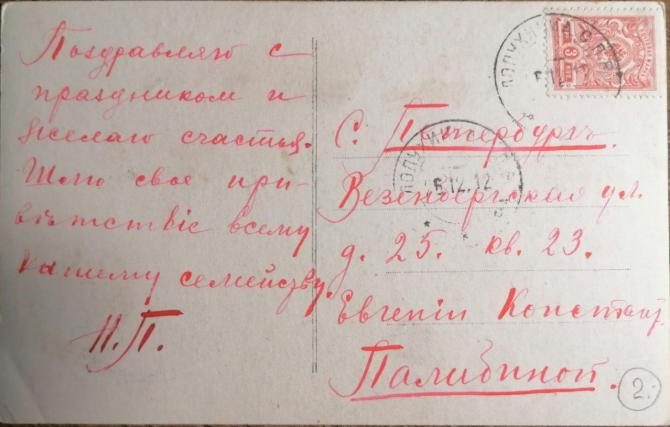 Поздравляю с
праздником и
желаю счастья.
Шлю свое при-
вѣтствіе всему
вашему семейству.
Н.П.
С. Петербургъ.
Везенбергская ул.
д. 25. кв. 23.
Евгеніи Констант.
Палибиной.
6.12.12
3
2.